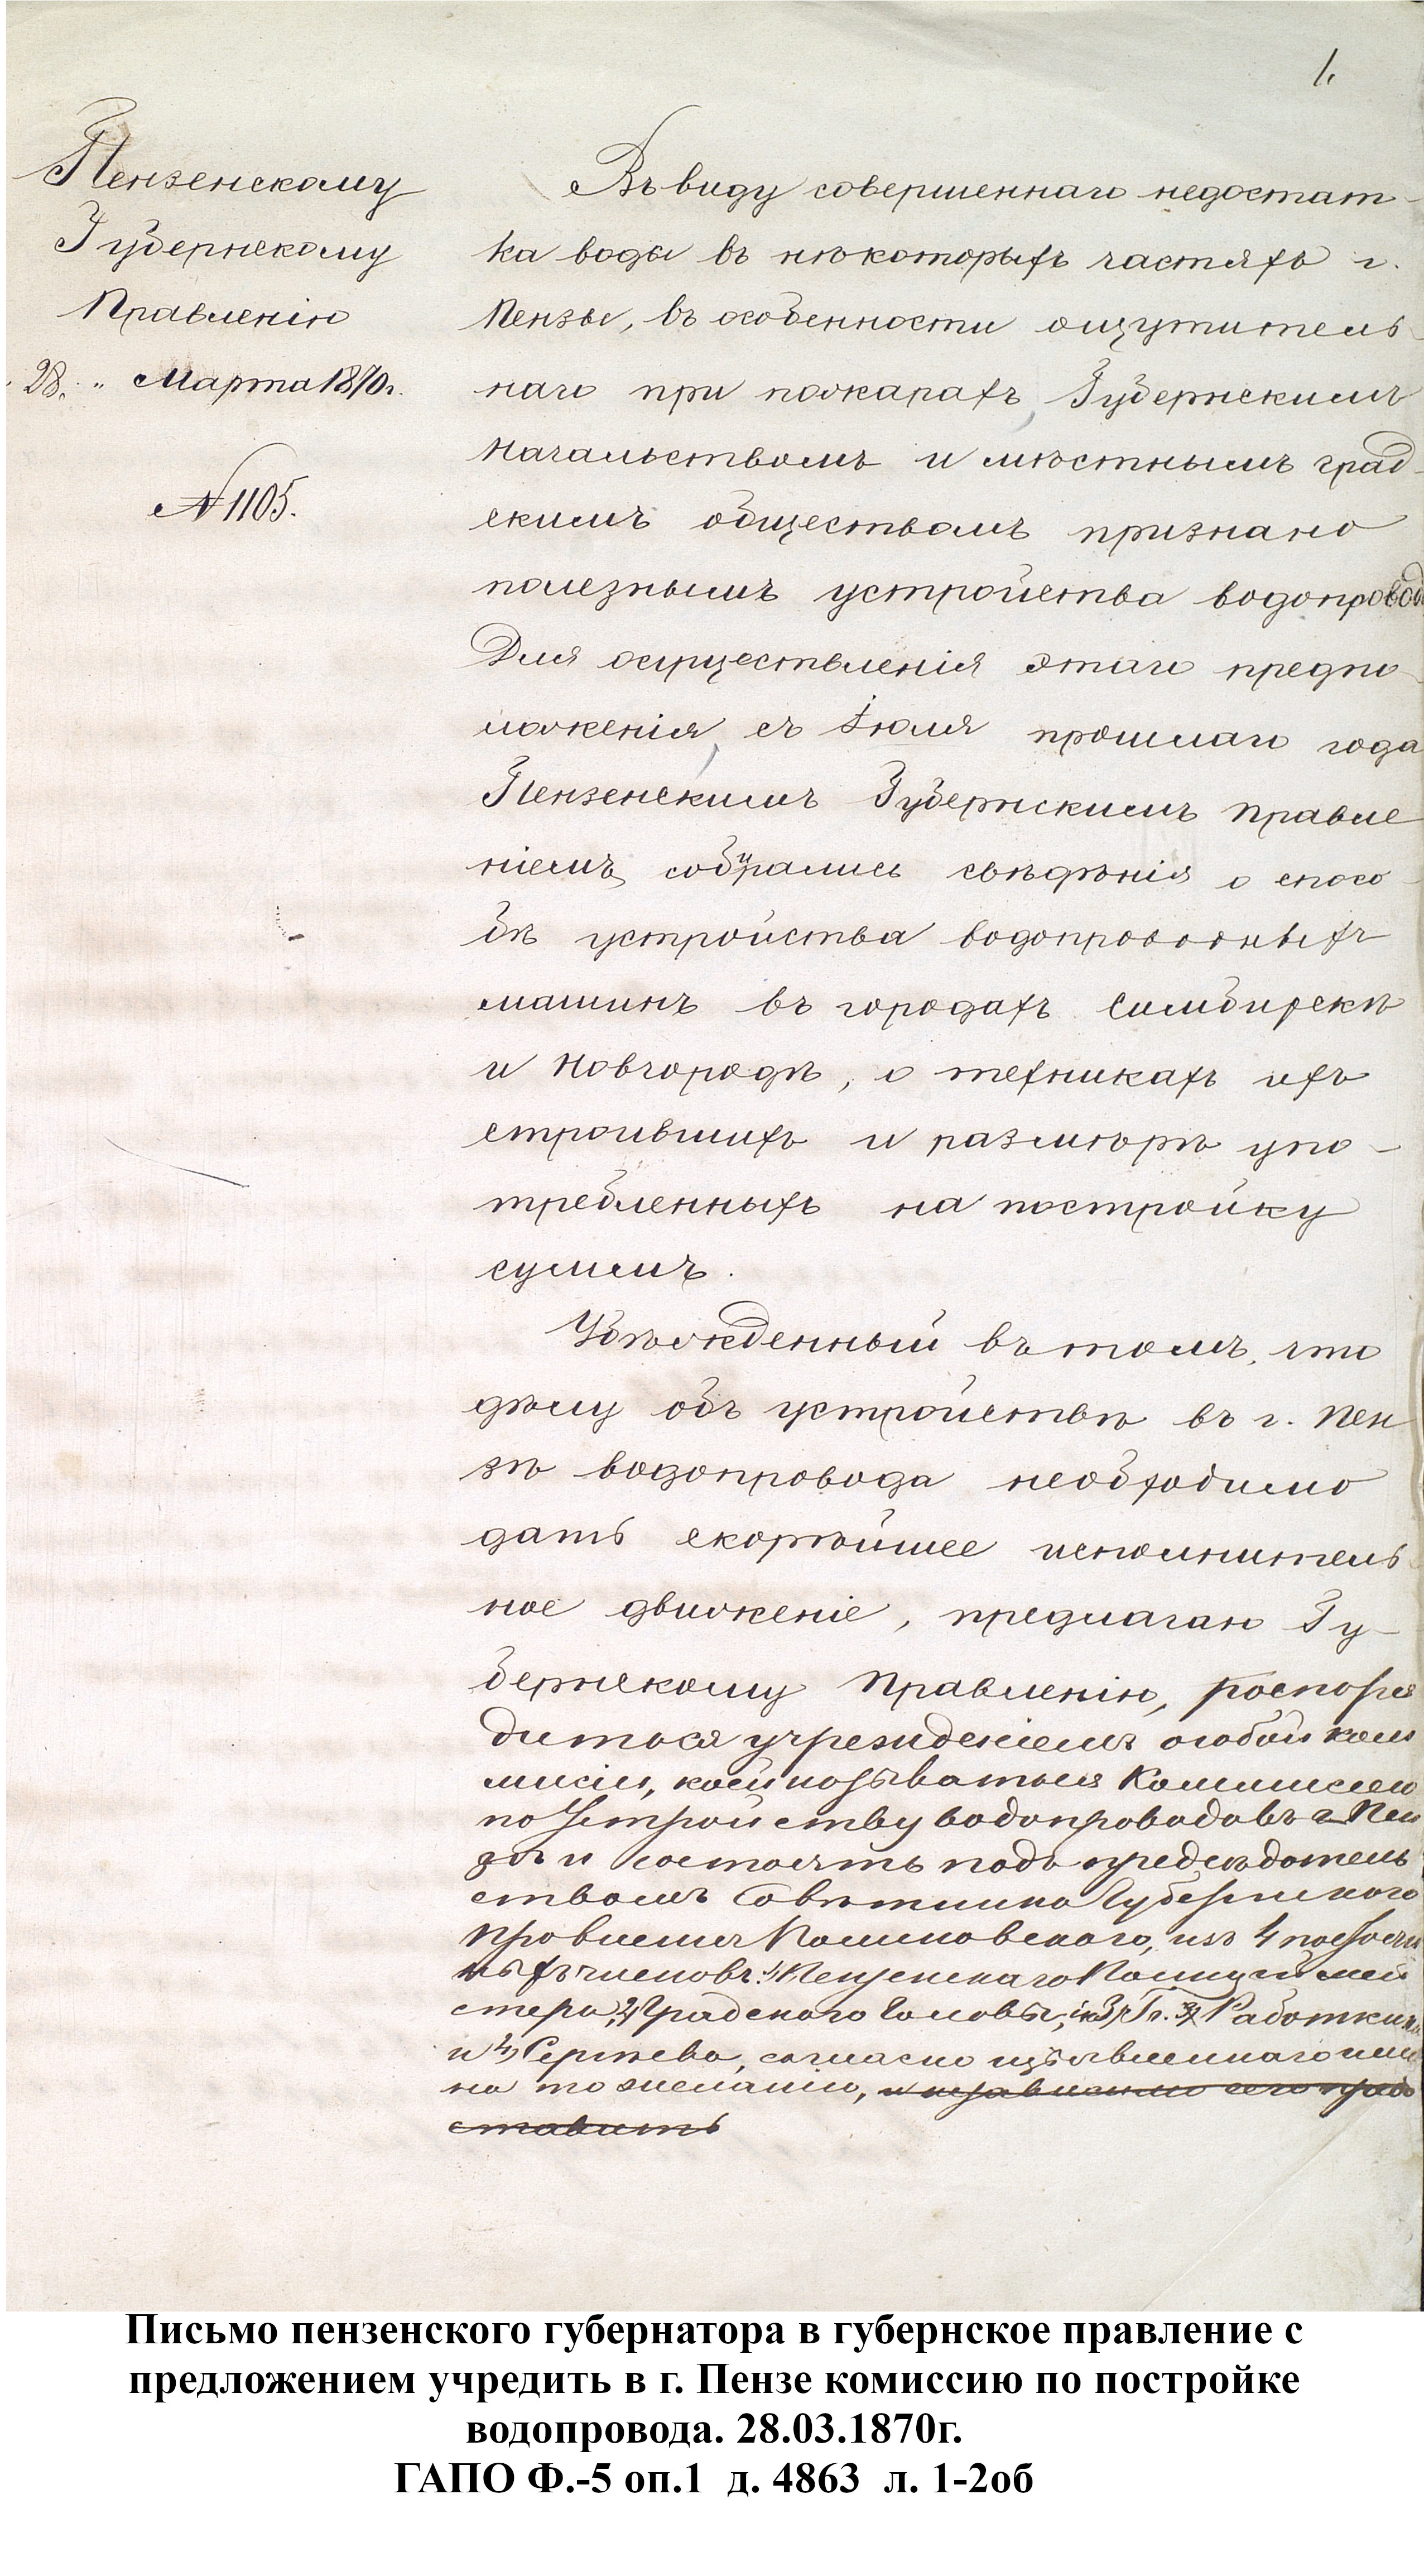 1.
Пензенскому
Губернскому
Правленію
28. „ Марта 1870 г.
№ 1105.
Въ виду совершеннаго недостат-
ка воды въ нѣкоторыхъ частяхъ г.
Пензы, въ особенности ощутитель-
наго при пожарахъ, Губернскимъ
Начальствомъ и мѣстнымъ град-
скимъ обществомъ признано
полезнымъ устройства водопровод
Для осуществленія этаго предпо-
ложенія, съ Іюля прошлаго года
Пензенскимъ Губернскимъ Правле
ніемъ собирались свѣдѣнія о спосо-
бѣ устройства водопроводныхъ
машинъ въ городахъ Симбирскѣ
и Новгородѣ, о техникахъ ихъ
строившихъ и размѣрѣ упо-
требленныхъ на постройку
суммъ.
Убѣжденный въ томъ, что
дѣлу объ устройствѣ въ г. Пен
зѣ водопровода необходимо
дать скорѣйшее исполнитель-
ное движеніе, предлагаю Гу-
бернскому Правленію, распоря
диться учрежденіемъ особой ком
мисіи, коей называться Коммисіею
по Устройству водопроводовъ г. Пен
зѣ и состоять подъ предсѣдатель
ствомъ Совѣтника Губернскаго
Правленія, изъ 4 
ныхъ членовъ: 1) Пензенскаго Полиціймей
стера, 2) Градскаго Головы, 3) Гг. Работкина
и 4) Сергѣева, согласно изъявленнаго ими
на то желанію, и независимо сего пред
ставить
Письмо пензенского губернатора в губернское правление с
предложением учредить в г. Пензе комиссию по постройке
водопровода. 28.03.1870г.
ГАПО Ф.-5 оп.1 д. 4863 л. 1-2об